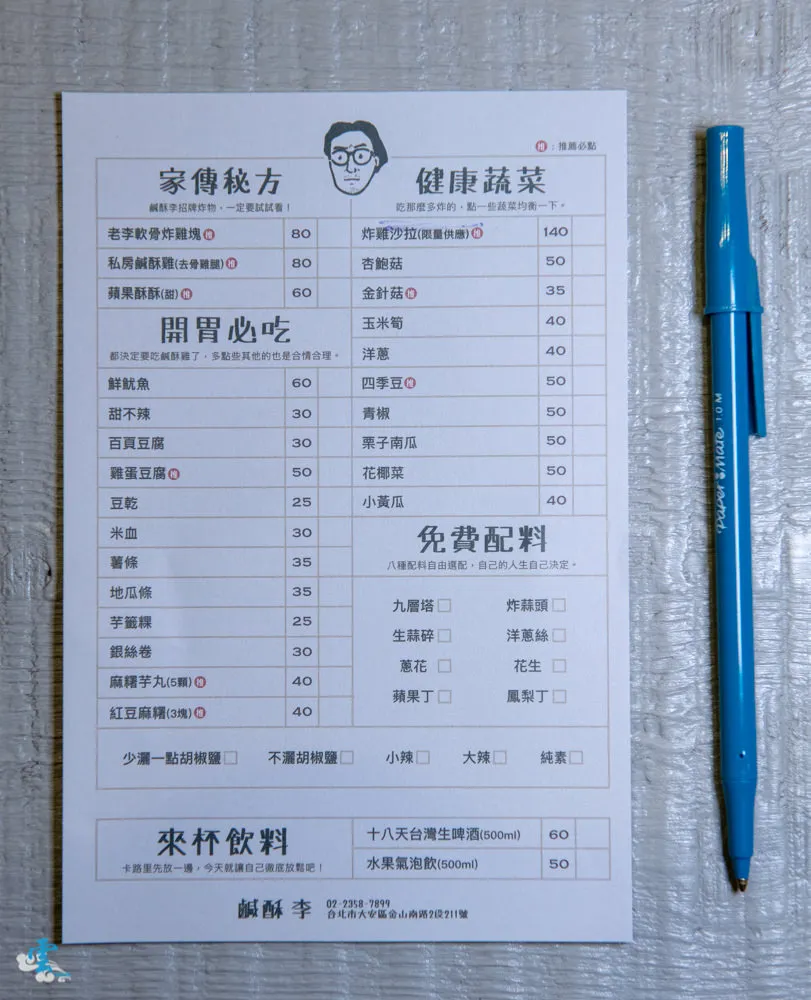 推：推薦必點
家傳秘方
鹹酥李招牌炸物，一定要試試看！
老李軟骨炸雞塊 推 80
私房鹹酥雞(去骨雞腿) 推 80
蘋果酥酥(甜) 推 60
開胃必吃
都決定要吃鹹酥雞了，多點些其他的也是合情合理。
鮮魷魚 60
甜不辣 30
百頁豆腐 30
雞蛋豆腐 推 50
豆乾 25
米血 30
薯條 35
地瓜條 35
芋籤粿 25
銀絲卷 30
麻糬芋丸(5顆) 推 40
紅豆麻糬(3塊) 推 40
健康蔬菜
吃那麼多炸的，點一些蔬菜均衡一下。
炸雞沙拉(限量供應) 推 140
杏鮑菇 50
金針菇 推 35
玉米筍 40
洋蔥 40
四季豆 推 50
青椒 50
栗子南瓜 50
花椰菜 50
小黃瓜 40
免費配料
八種配料自由選配，自己的人生自己決定。
九層塔 炸蒜頭
生蒜碎 洋蔥絲
蔥花 花生
蘋果丁 鳳梨丁
少灑一點胡椒鹽 不灑胡椒鹽 小辣 大辣 純素
來杯飲料
卡路里先放一邊，今天就讓自己徹底放鬆吧！
十八天台灣生啤酒(500ml) 60
水果氣泡飲(500ml) 50
鹹酥李
02-2358-7899
台北市大安區金山南路2段211號
Paper Mate 1.0 M
雲